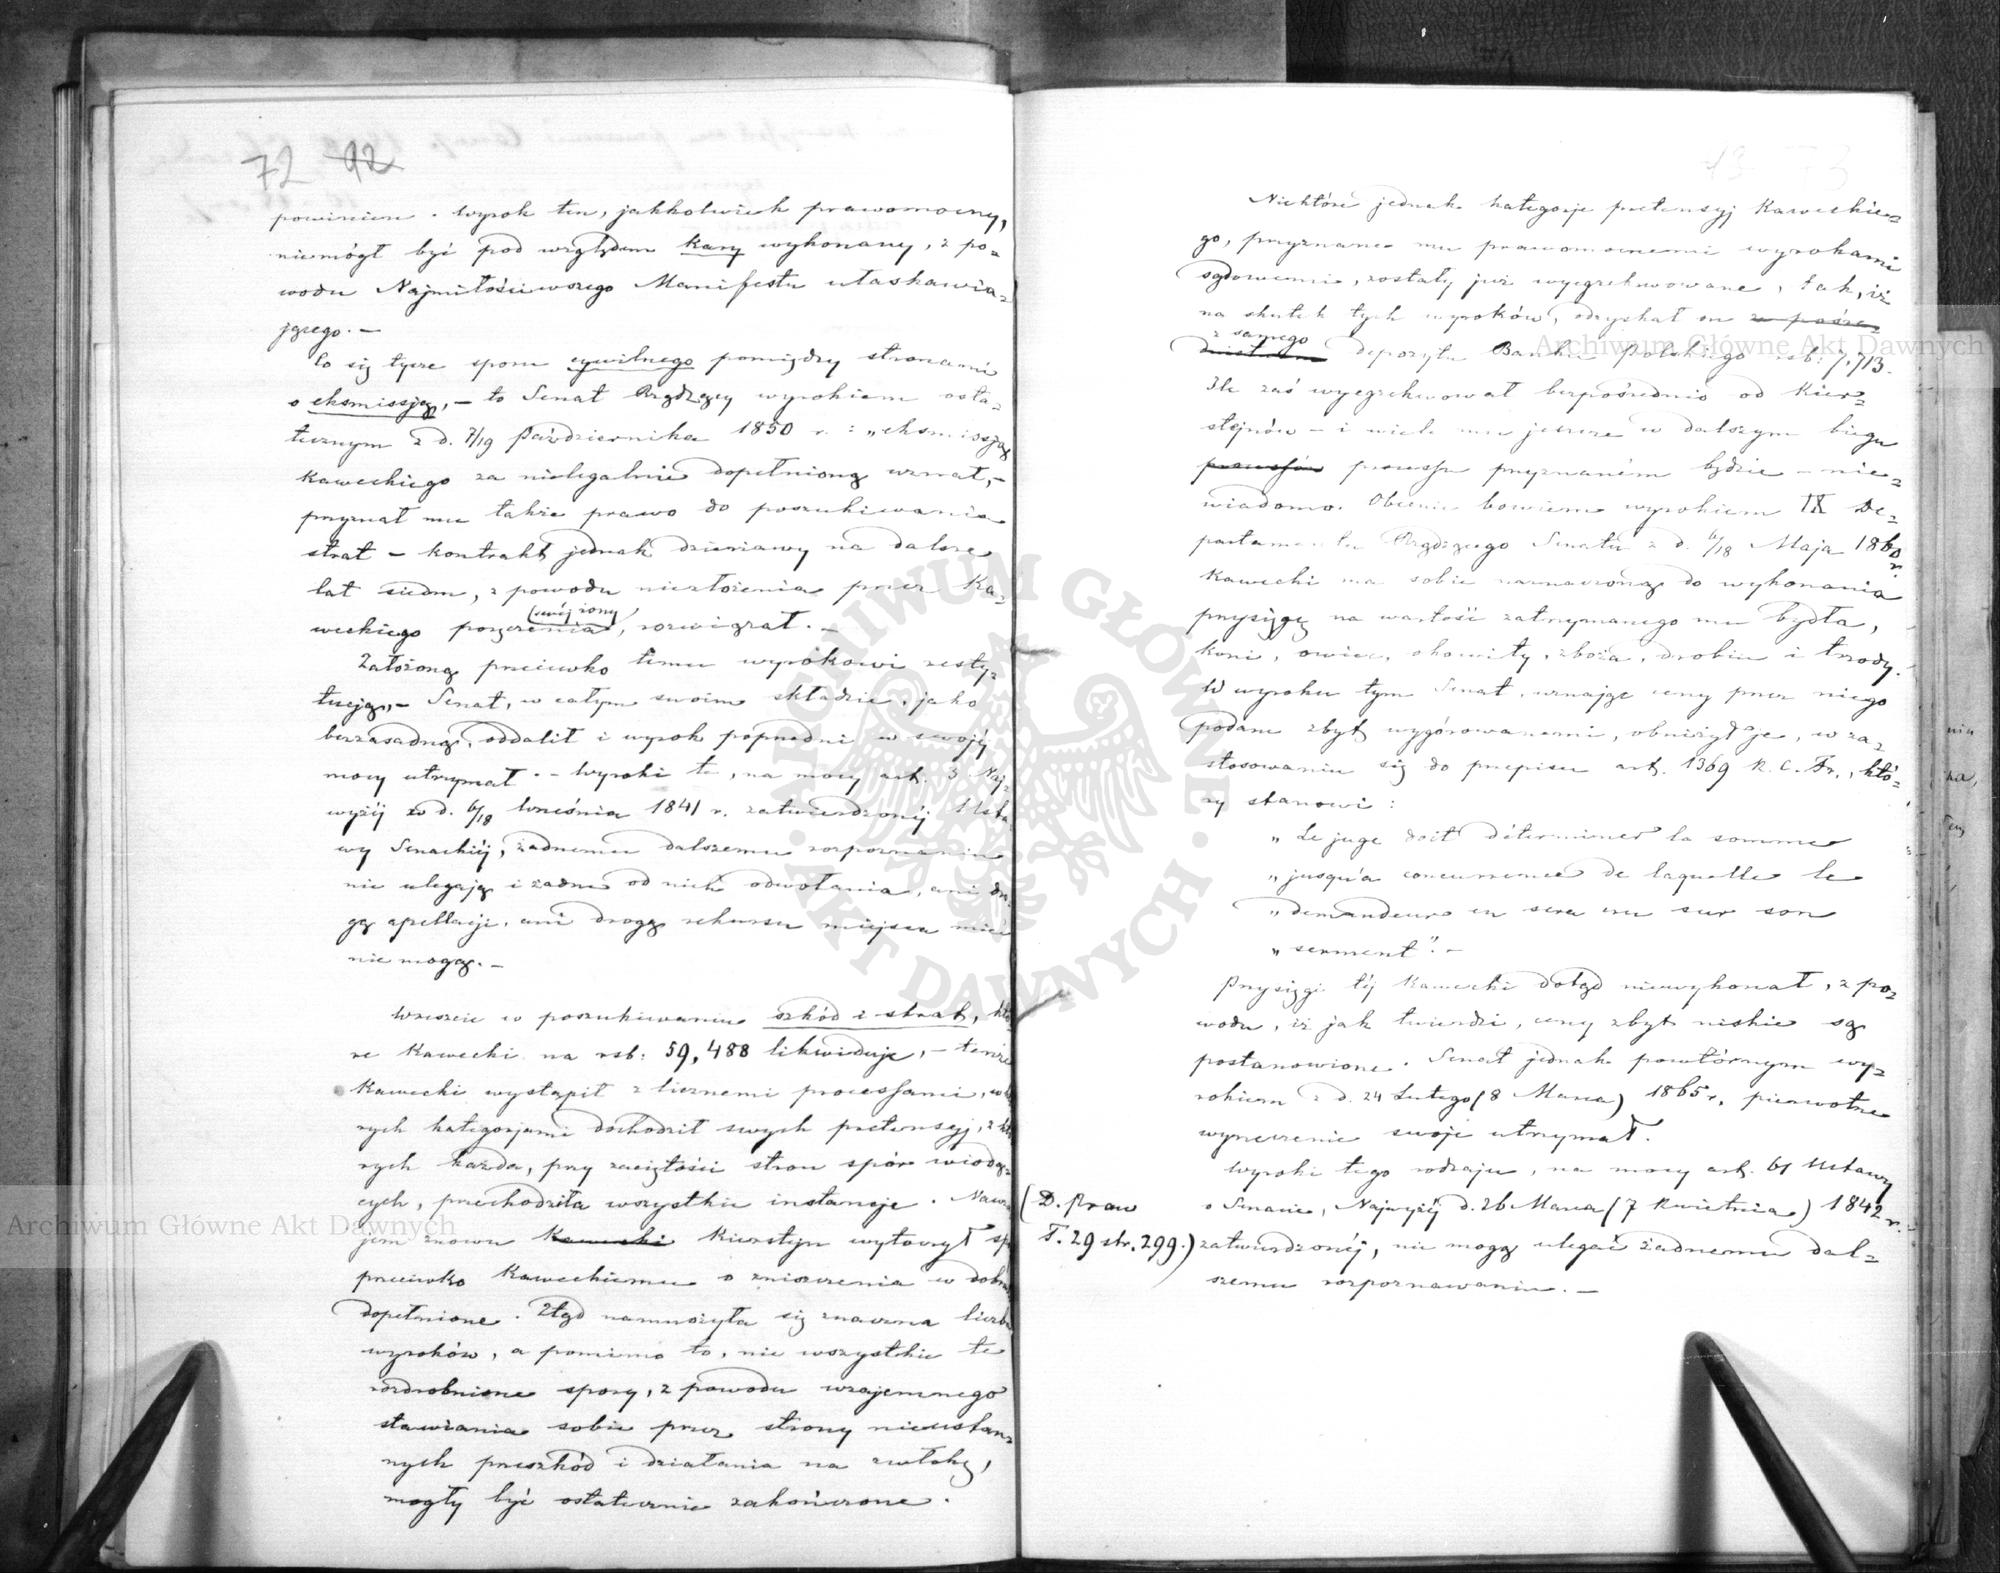 72 92
powinien. Wyrok ten, jakkolwiek prawomocny,
niemógł być pod względem kary wykonany, z po=
wodu Najmiłościwszego Manifestu ułaskawia=
jącego. —
Co się tycze sporu cywilnego pomiędzy stronami
o eksmissję, — to Senat Rządzący wyrokiem osta=
tecznym z d. 7/19 Października 1850 r.: „eksmissję
Kaweckiego za nielegalnie dopełnioną uznał, —
przyznał mu także prawo do poszukiwania
strat — kontrakt jednak dzierżawy na dalsze
lat siedm, z powodu niezłożenia przez Ka=
weckiego poręczenia (swéj żony), rozwiązał. —
Założoną przeciwko temu wyrokowi resty=
tucję, — Senat, w całym swoim składzie, jako
bezzasadną, oddalił i wyrok poprzedni w swojéj
mocy utrzymał. — Wyroki te, na mocy art. 3 Naj=
wyżéj w d. 6/18 Września 1841 r. zatwierdzonéj Usta
wy Senackiéj, żadnemu dalszemu rozpoznaniu
nie ulegają i żadne od nich odwołania, ani dro
gą apellacji, ani drogą rekursu miejsca mieć
nie mogą. —
Wreszcie w poszukiwaniu szkód i strat, któ
re Kawecki na rsb: 59,488 likwiduje, — tenże
Kawecki wystąpił z licznemi processami, w któ
rych kategorjami dochodził swych pretensyj, z któ
rych każda, przy zaciętości stron spór wiodą=
cych, przechodziła wszystkie instancje. Nawza
jem znowu Kawecki Kierstejn wytoczył sp
przeciwko Kaweckiemu o zniszczenia w dobra
dopełnione. Ztąd namnożyła się znaczna liczba
wyroków, a pomimo to, nie wszystkie te
rozdrobnione spory, z powodu wzajemnego
stawiania sobie przez strony nieustan=
nych przeszkód i działania na zwłokę,
mogły być ostatecznie zakończone.
73
Niektóre jednak kategorje pretensyj Kaweckie=
go, przyznane mu prawomocnemi wyrokami
sądowemi, zostały już wyegzekwowane, tak, iż
na skutek tych wyroków, odzyskał on za pośre=
z samego
dnictwem depozytu Banku Polskiego rsb: 7,713.
Ile zaś wyegzekwował bezpośrednio od Kier=
stejnów — i wiele mu jeszcze w dalszym biegu
processów processu przyznaném będzie — nie=
wiadomo. Obecnie bowiem wyrokiem IX De=
partamentu Rządzącego Senatu z d. 6/18 Maja 1860 r.
Kawecki ma sobie naznaczoną do wykonania
przysięgę na wartość zatrzymanego mu bydła,
koni, owiec, okowity, zboża, drobiu i trzody.
W wyroku tym Senat, uznając ceny przez niego
podane zbyt wygórowanemi, obniżył je, w za=
stosowaniu się do przepisu art. 1369 K. C. Fr., któ=
ry stanowi:
„Le juge doit déterminer la somme
„jusqu'a concurrence de laquelle le
„demandeur en sera cru sur son
„serment". —
Przysięgi téj Kawecki dotąd niewykonał, z po=
wodu, iż jak twierdzi, ceny zbyt niskie są
postanowione. Senat jednak powtórnym wy=
rokiem z d. 24 Lutego (8 Marca) 1865 r. pierwotne
wyrzeczenie swoje utrzymał.
Wyroki tego rodzaju, na mocy art. 61 Ustawy
o Senacie, Najwyżéj d. 26 Marca (7 Kwietnia) 1842 r.
(D. Praw
T. 29 str. 299.) zatwierdzonéj, nie mogą ulegać żadnemu dal=
szemu rozpoznawaniu. —
Archiwum Główne Akt Dawnych
Archiwum Główne Akt Dawnych
ARCHIWUM GŁÓWNE · AKT DAWNYCH ·